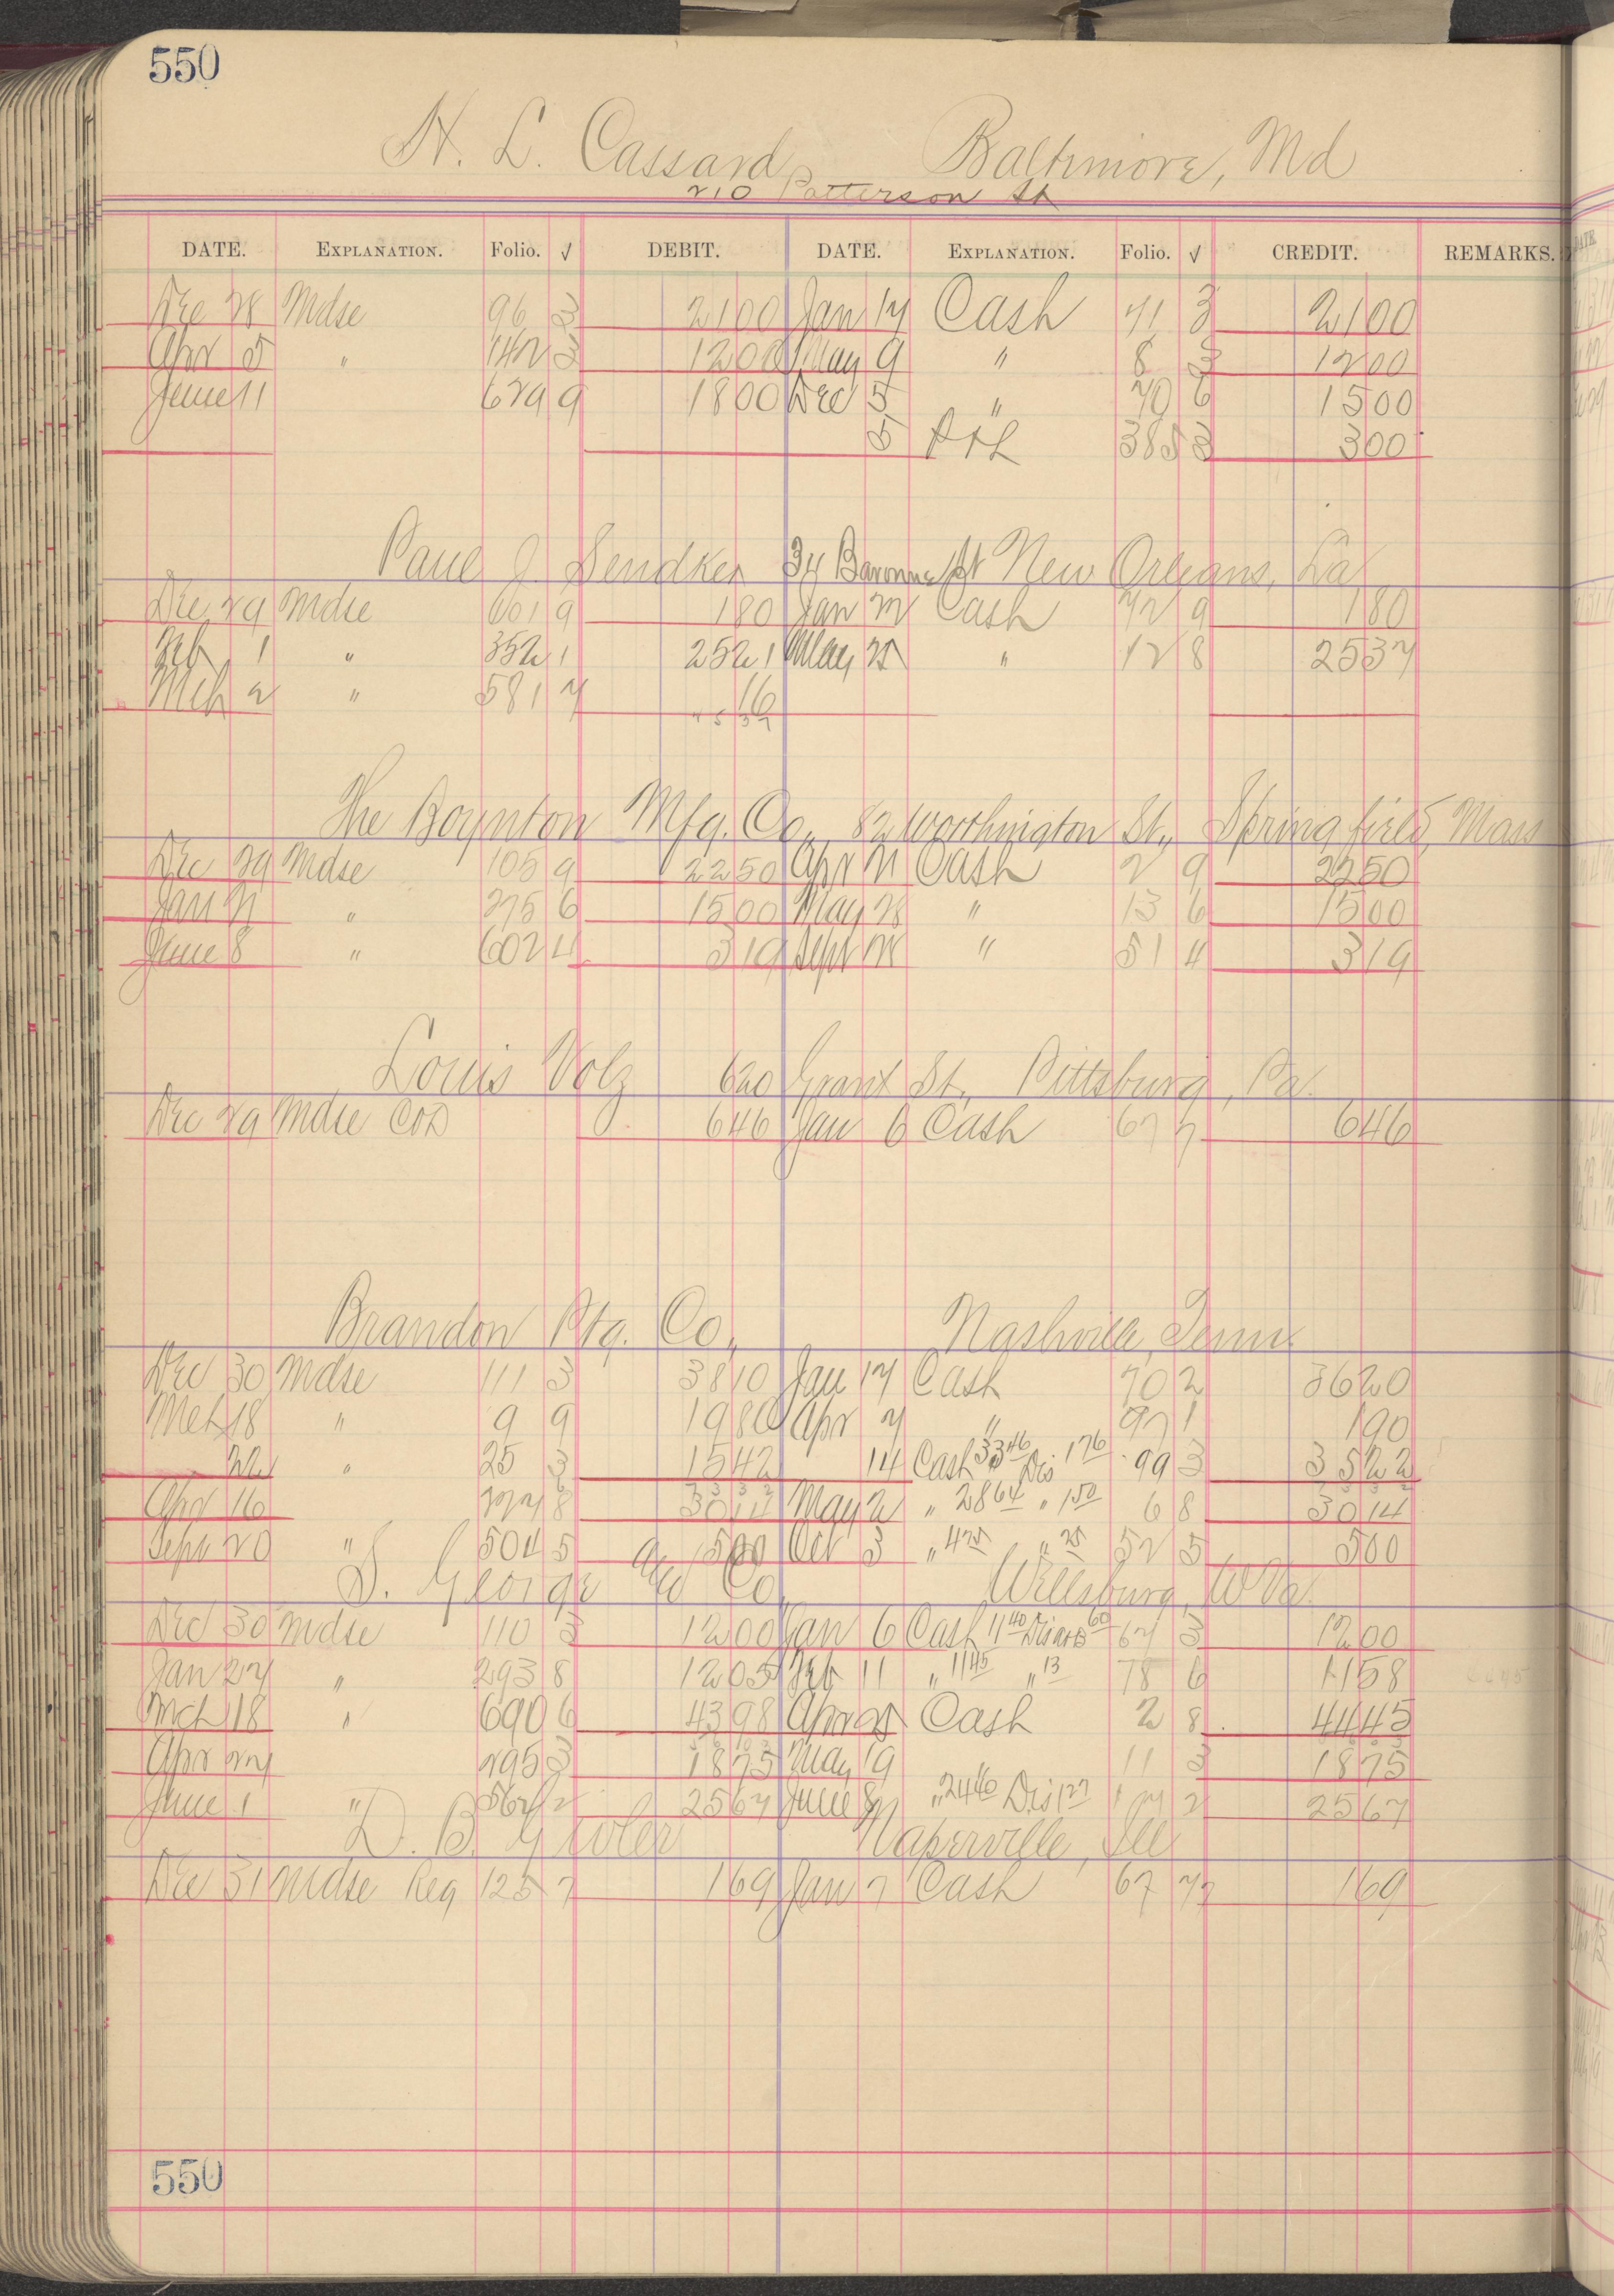 550
H. L. Cassard Baltimore, Md
210 Patterson St
DATE. EXPLANATION. Folio. √ DEBIT. DATE. EXPLANATION. Folio. √ CREDIT. REMARKS.
Dec 28 Mdse 96 2100 Jan 17 Cash 71 3 2100
Apr 5 " 142 1200 May 9 " 8 3 1200
June 11 629 9 1800 Dec 5 " 70 6 1500
5 P & L 385 3 300
Paul J. Sendker 34 Baronne St New Orleans, La
Dec 29 Mdse 601 9 180 Jan 22 Cash 72 9 180
Feb 1 " 352 1 2521 May 25 " 12 8 2537
Mch 2 " 581 7 16
2537
The Boynton Mfg. Co., 82 Worthington St., Springfield, Mass
Dec 29 Mdse 105 9 2250 Apr 21 Cash 2 9 2250
Jan 21 " 275 6 1500 May 28 " 13 6 1500
June 8 " 602 4 319 Sept 22 " 51 4 319
Louis Volz 620 Grant St., Pittsburg, Pa.
Dec 29 Mdse COD 646 Jan 6 Cash 67 7 646
Brandon Ptg. Co., Nashville, Tenn.
Dec 30 Mdse 111 3 3810 Jan 17 Cash 70 2 3620
Mch 18 " 9 9 1980 Apr 7 " 97 1 190
22 " 25 3 1542 14 Cash 33 46 Dis 1 76 99 3 3522
Apr 16 227 8 3014 May 2 " 28 64 " 1 50 6 8 3014
Sept 20 " 504 5 500 Oct 3 " 4 75 " 25 52 5 500
S. George Co. Wellsburg, W Va.
Dec 30 Mdse 110 3 1200 Jan 6 Cash 11 40 60 67 3 1200
Jan 27 " 293 8 1205 Feb 11 " 11 45 " 13 78 6 1158
Mch 18 " 690 6 4398 Apr 25 Cash 2 8 4445
Apr 27 295 3 1875 May 19 11 3 1875
June 1 " 564 2 2567 June " 24 40 Dis 1 27 17 2 2567
D. B. Givler Naperville, Ill
Dec 31 Mdse Reg 125 7 169 Jan 7 Cash 67 169
550